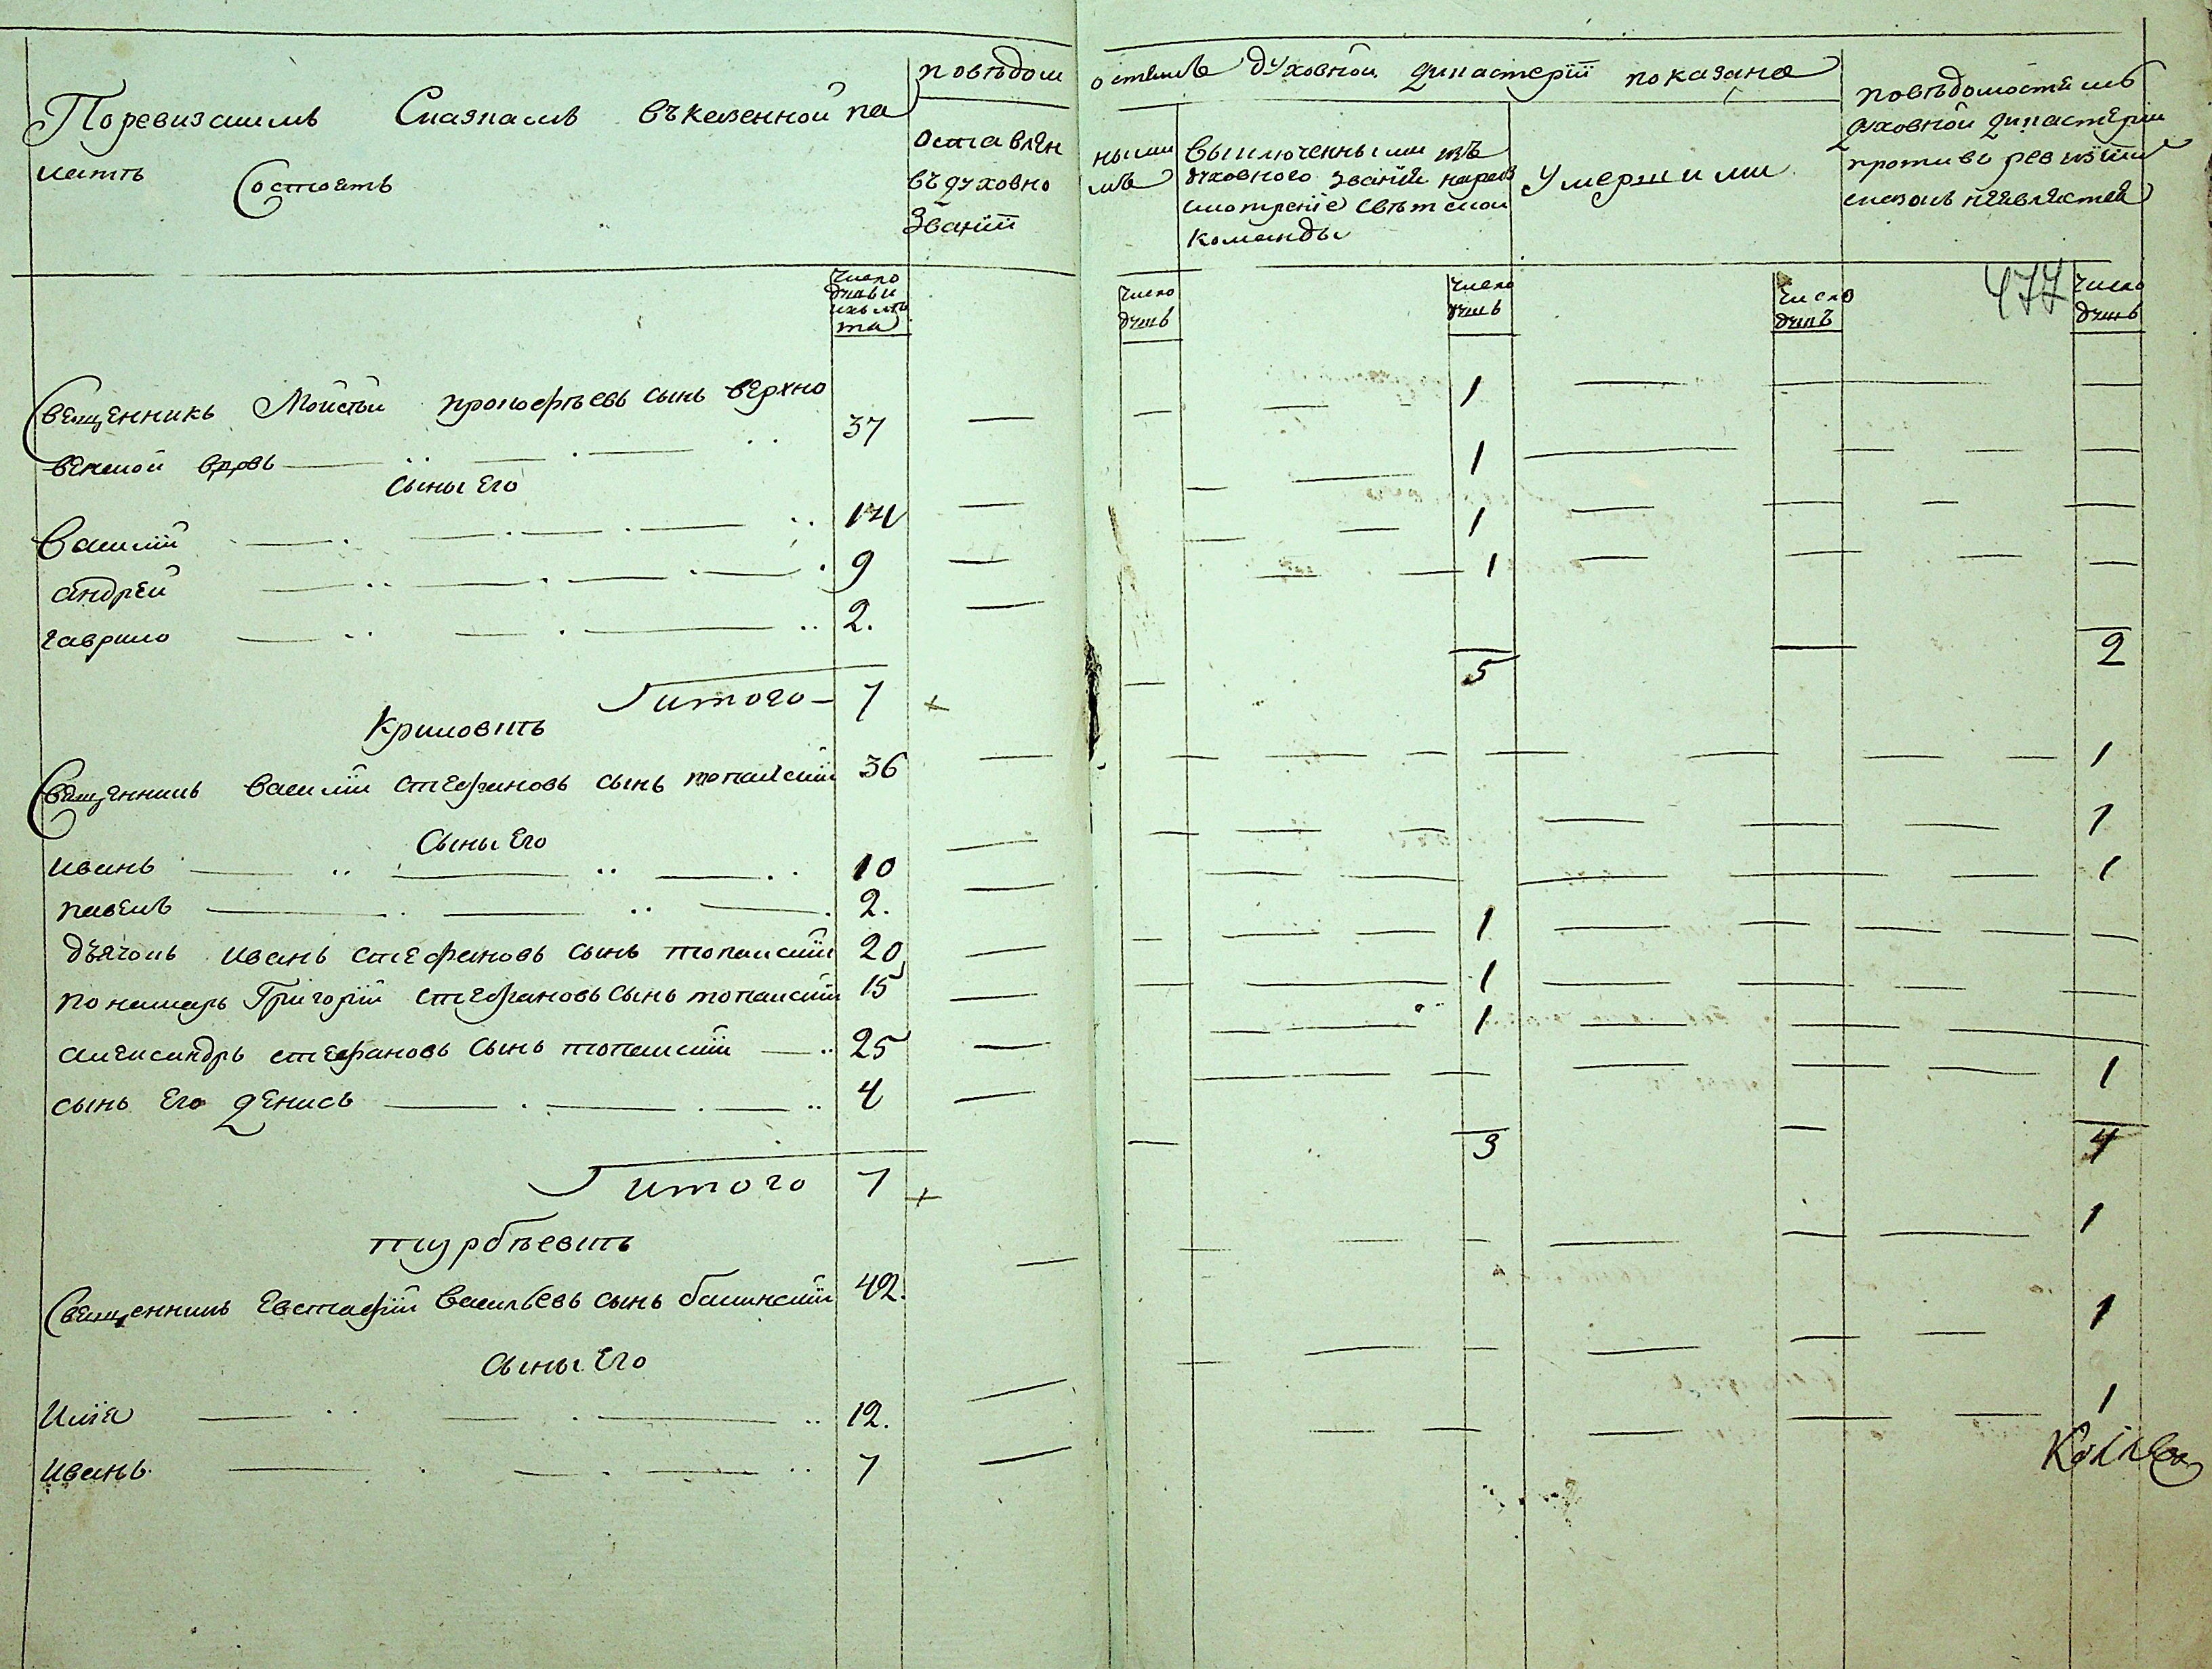 Поревизскимъ Сказкамъ въказенной па
латѣ Состоятъ
повѣдом
оставлен
въ духовно
званїи
число
душъ и
ихъ лѣ
та
остямъ духовной дикастерїи показано
ными
мъ
выключенными изъ
духовного званїя наразъ
смотренїе свѣтской
команды
умершими
повѣдомостямъ
духовной дикастерїи
противо ревизїи
сказокъ неявляется
число
душъ
число
душъ
число
душъ
477
число
душъ
Священникъ Мойсѣй прокофѣевъ сынъ верхно
37
1
Сыны Его
1
Василїй 14 1
андрей 9 1
гаврило 2.
итого 7 5 2
Криловѣ
Священникъ Василїй Стефановъ сынъ топальскїй 36 1
Сыны Его
иванъ 10 1
павелъ 2. 1
дьячокъ иванъ стефановъ сынъ топальскїй 20 1
пономарь Григорїй стефановъ сынъ топальскїй 15 1
александръ стефановъ сынъ топальскїй 25 1
сынъ его денисъ 4 1
итого 7 3 4
турбѣевкѣ
Священникъ Евстафїй Васильевъ сынъ балинскїй 42. 1
Сыны Его
Илїя 12. 1
иванъ 7 1